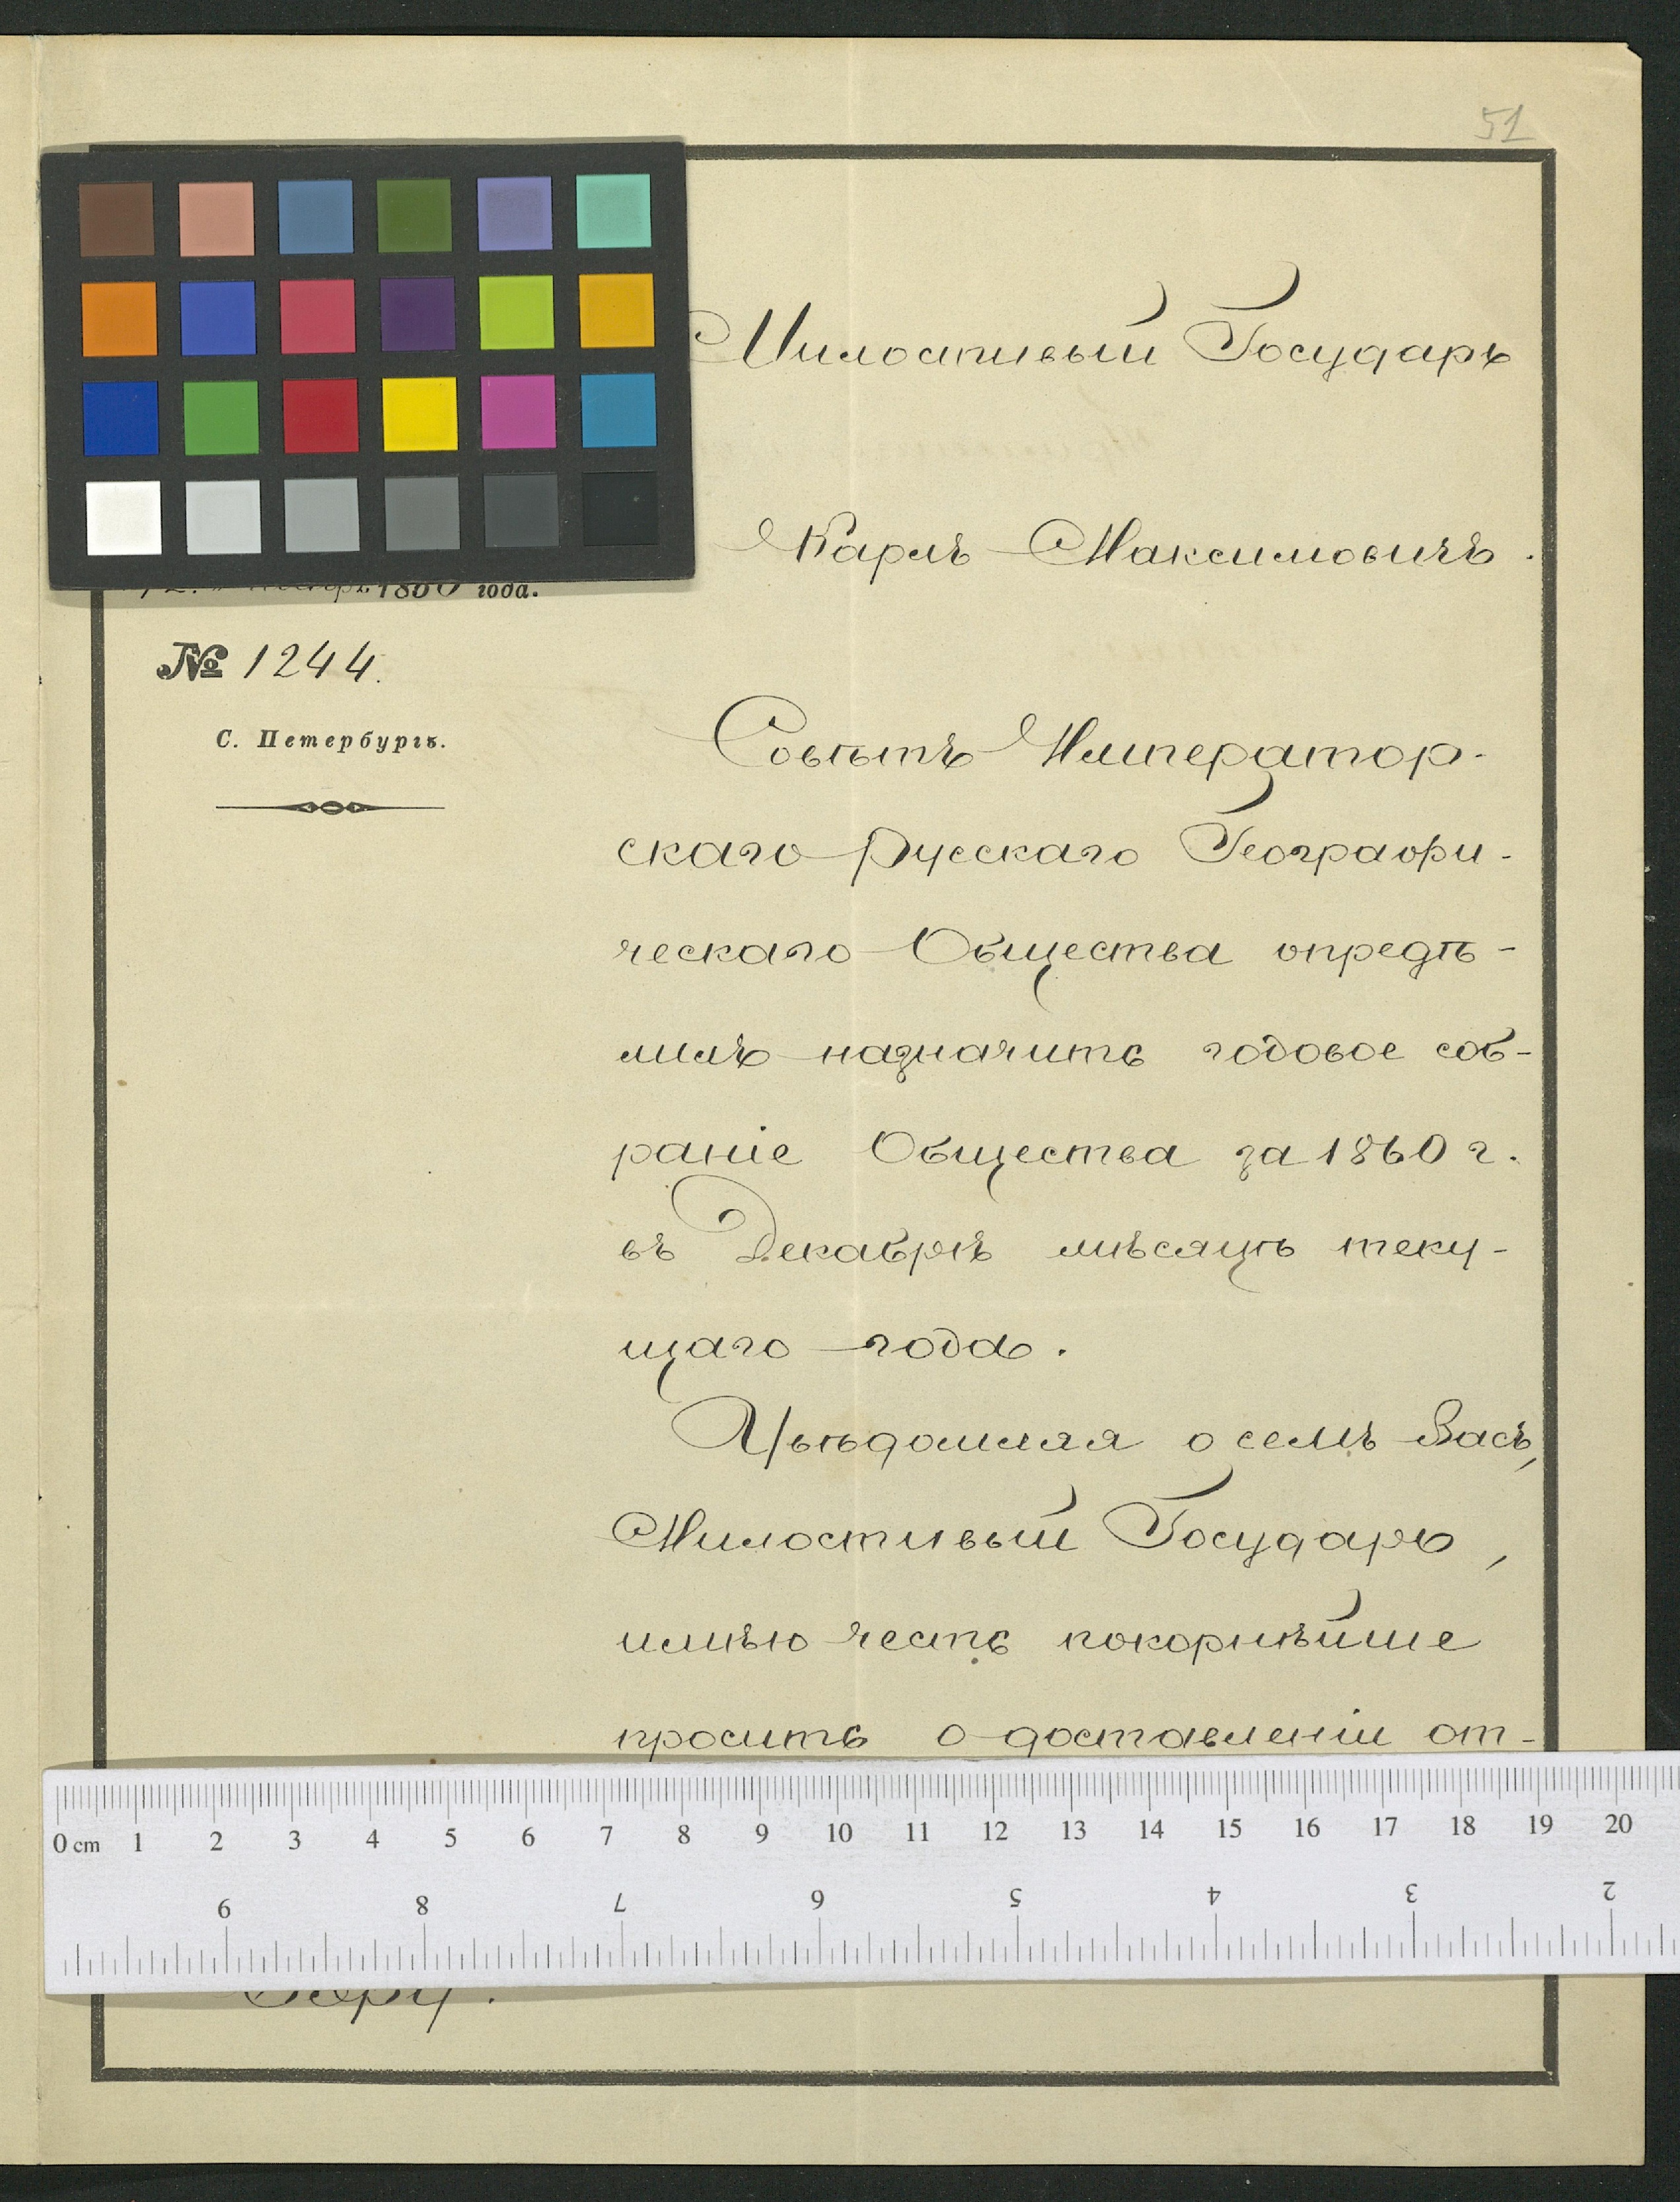 51
Милостивый Государь
Карлъ Максимовичъ.
1860 года.
№ 1244.
С. Петербургъ.
Совѣтъ Император-
скаго Русскаго Географи-
ческаго Общества опредѣ-
лилъ назначить годовое соб-
раніе Общества за 1860 г.
въ Декабрѣ мѣсяцѣ теку-
щаго года.
Увѣдомляя о семъ Васъ,
Милостивый Государь,
имѣю честь покорнѣйше
просить о доставленіи от-
0 cm 1 2 3 4 5 6 7 8 9 10 11 12 13 14 15 16 17 18 19 20
9 8 7 6 5 4 3 2
Бэру.